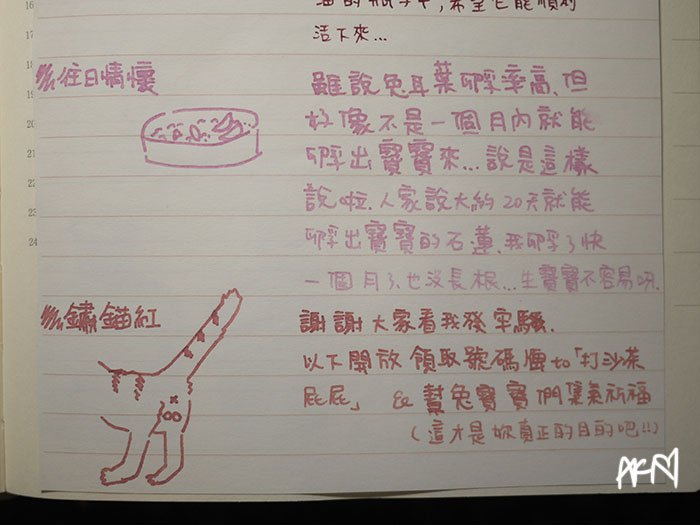 油的瓶子中,希望它能順利
活下來...
往日情懷
雖說兔耳葉孵率高,但
好像不是一個月內就能
孵出寶寶來...說是這樣
說啦.人家說大約20天就能
孵出寶寶的石蓮,我孵了快
一個月了也沒長根...生寶寶不容易呀.
鏽錨紅
謝謝大家看我發牢騷.
以下開放領取號碼牌to「打沙茶
屁屁」 & 幫兔寶寶們集氣祈福
(這才是妳真正的目的吧!!)
16
17
18
19
20
21
22
23
24